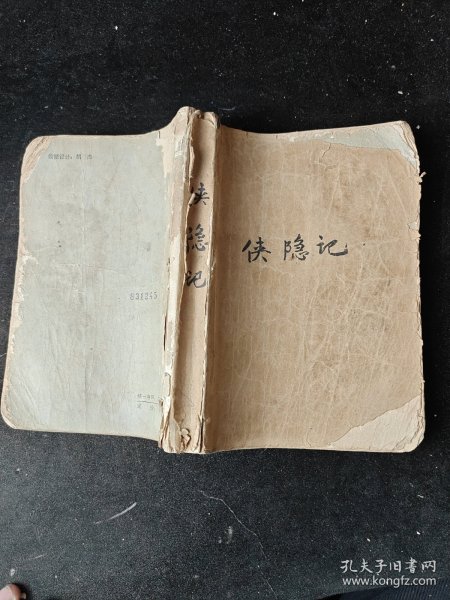 侠隐记
侠隐记
831245
孔夫子旧书网
www.kongfz.com